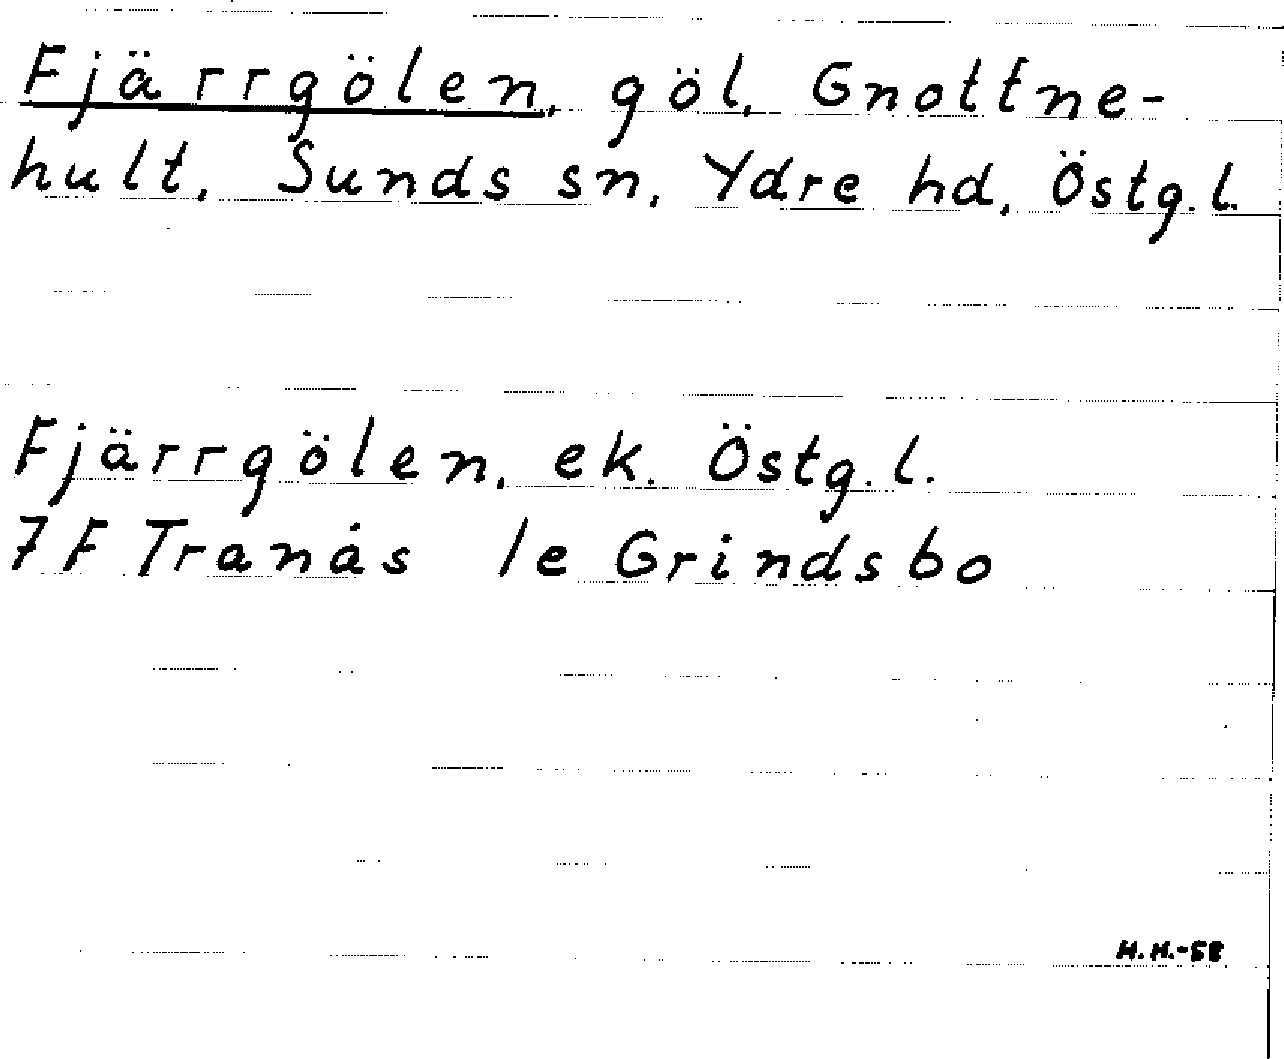 Fjärrgölen, göl, Gnottne-
hult, Sunds sn, Ydre hd, Östg.l.
Fjärrgölen, ek. Östg.l.
7F Tranås 1e Grindsbo
H.H.-58